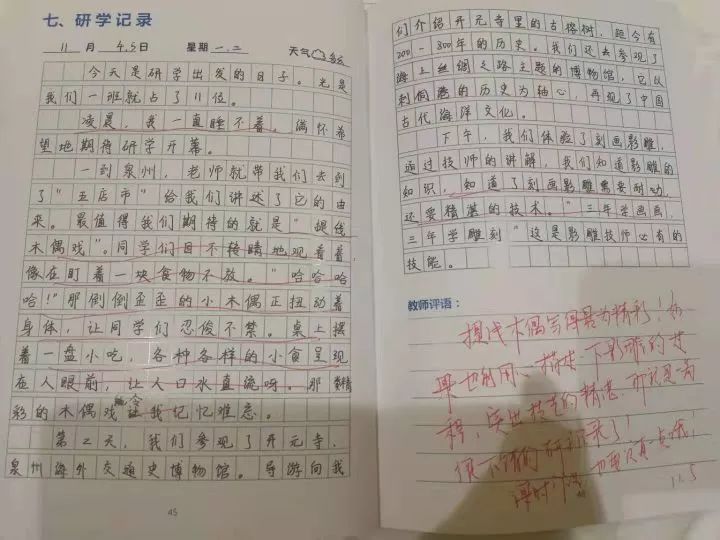 七、研学记录
11 月 4.5 日 星期 一.二 天气 多云
今天是研学出发的日子。光是
我们一班就占了11位。
凌晨,我一直睡不着。满怀希
望地期待研学开幕。
一到泉州,老师就带我们去到
了"五店市"给我们讲述了它的由
来。最值得我们期待的就是"提线
木偶戏"。同学们目不转睛地观看着,
像在盯着一块食物不放。"哈哈哈
哈!"那倒倒歪歪的小木偶正扭动着
身体,让同学们忍俊不禁。桌上摆
着一盘小吃,各种各样的小食呈现
在人眼前,让人口水直流呀。那精
彩的木偶戏令我记忆难忘。
第2天,我们参观了开元寺,
泉州海外交通史博物馆。导游向我
45
们介绍开元寺里的古榕树,距今有
200-800年的历史。我们还去参观了
海上丝绸之路主题的博物馆,它以
刺桐港的历史为轴心,再现了中国
古代海洋文化。
下午,我们体验了刻画影雕,
通过技师的讲解,我们知道影雕的
知识,知道了刻画影雕需要耐力,
还要精湛的技术。"三年学画画,
三年学雕刻"这是影雕技师必有的
技能。
教师评语:
提线木偶写得最为精彩!如
果也能用心描述一下影雕的过
程,突出技艺的精湛,
11.5